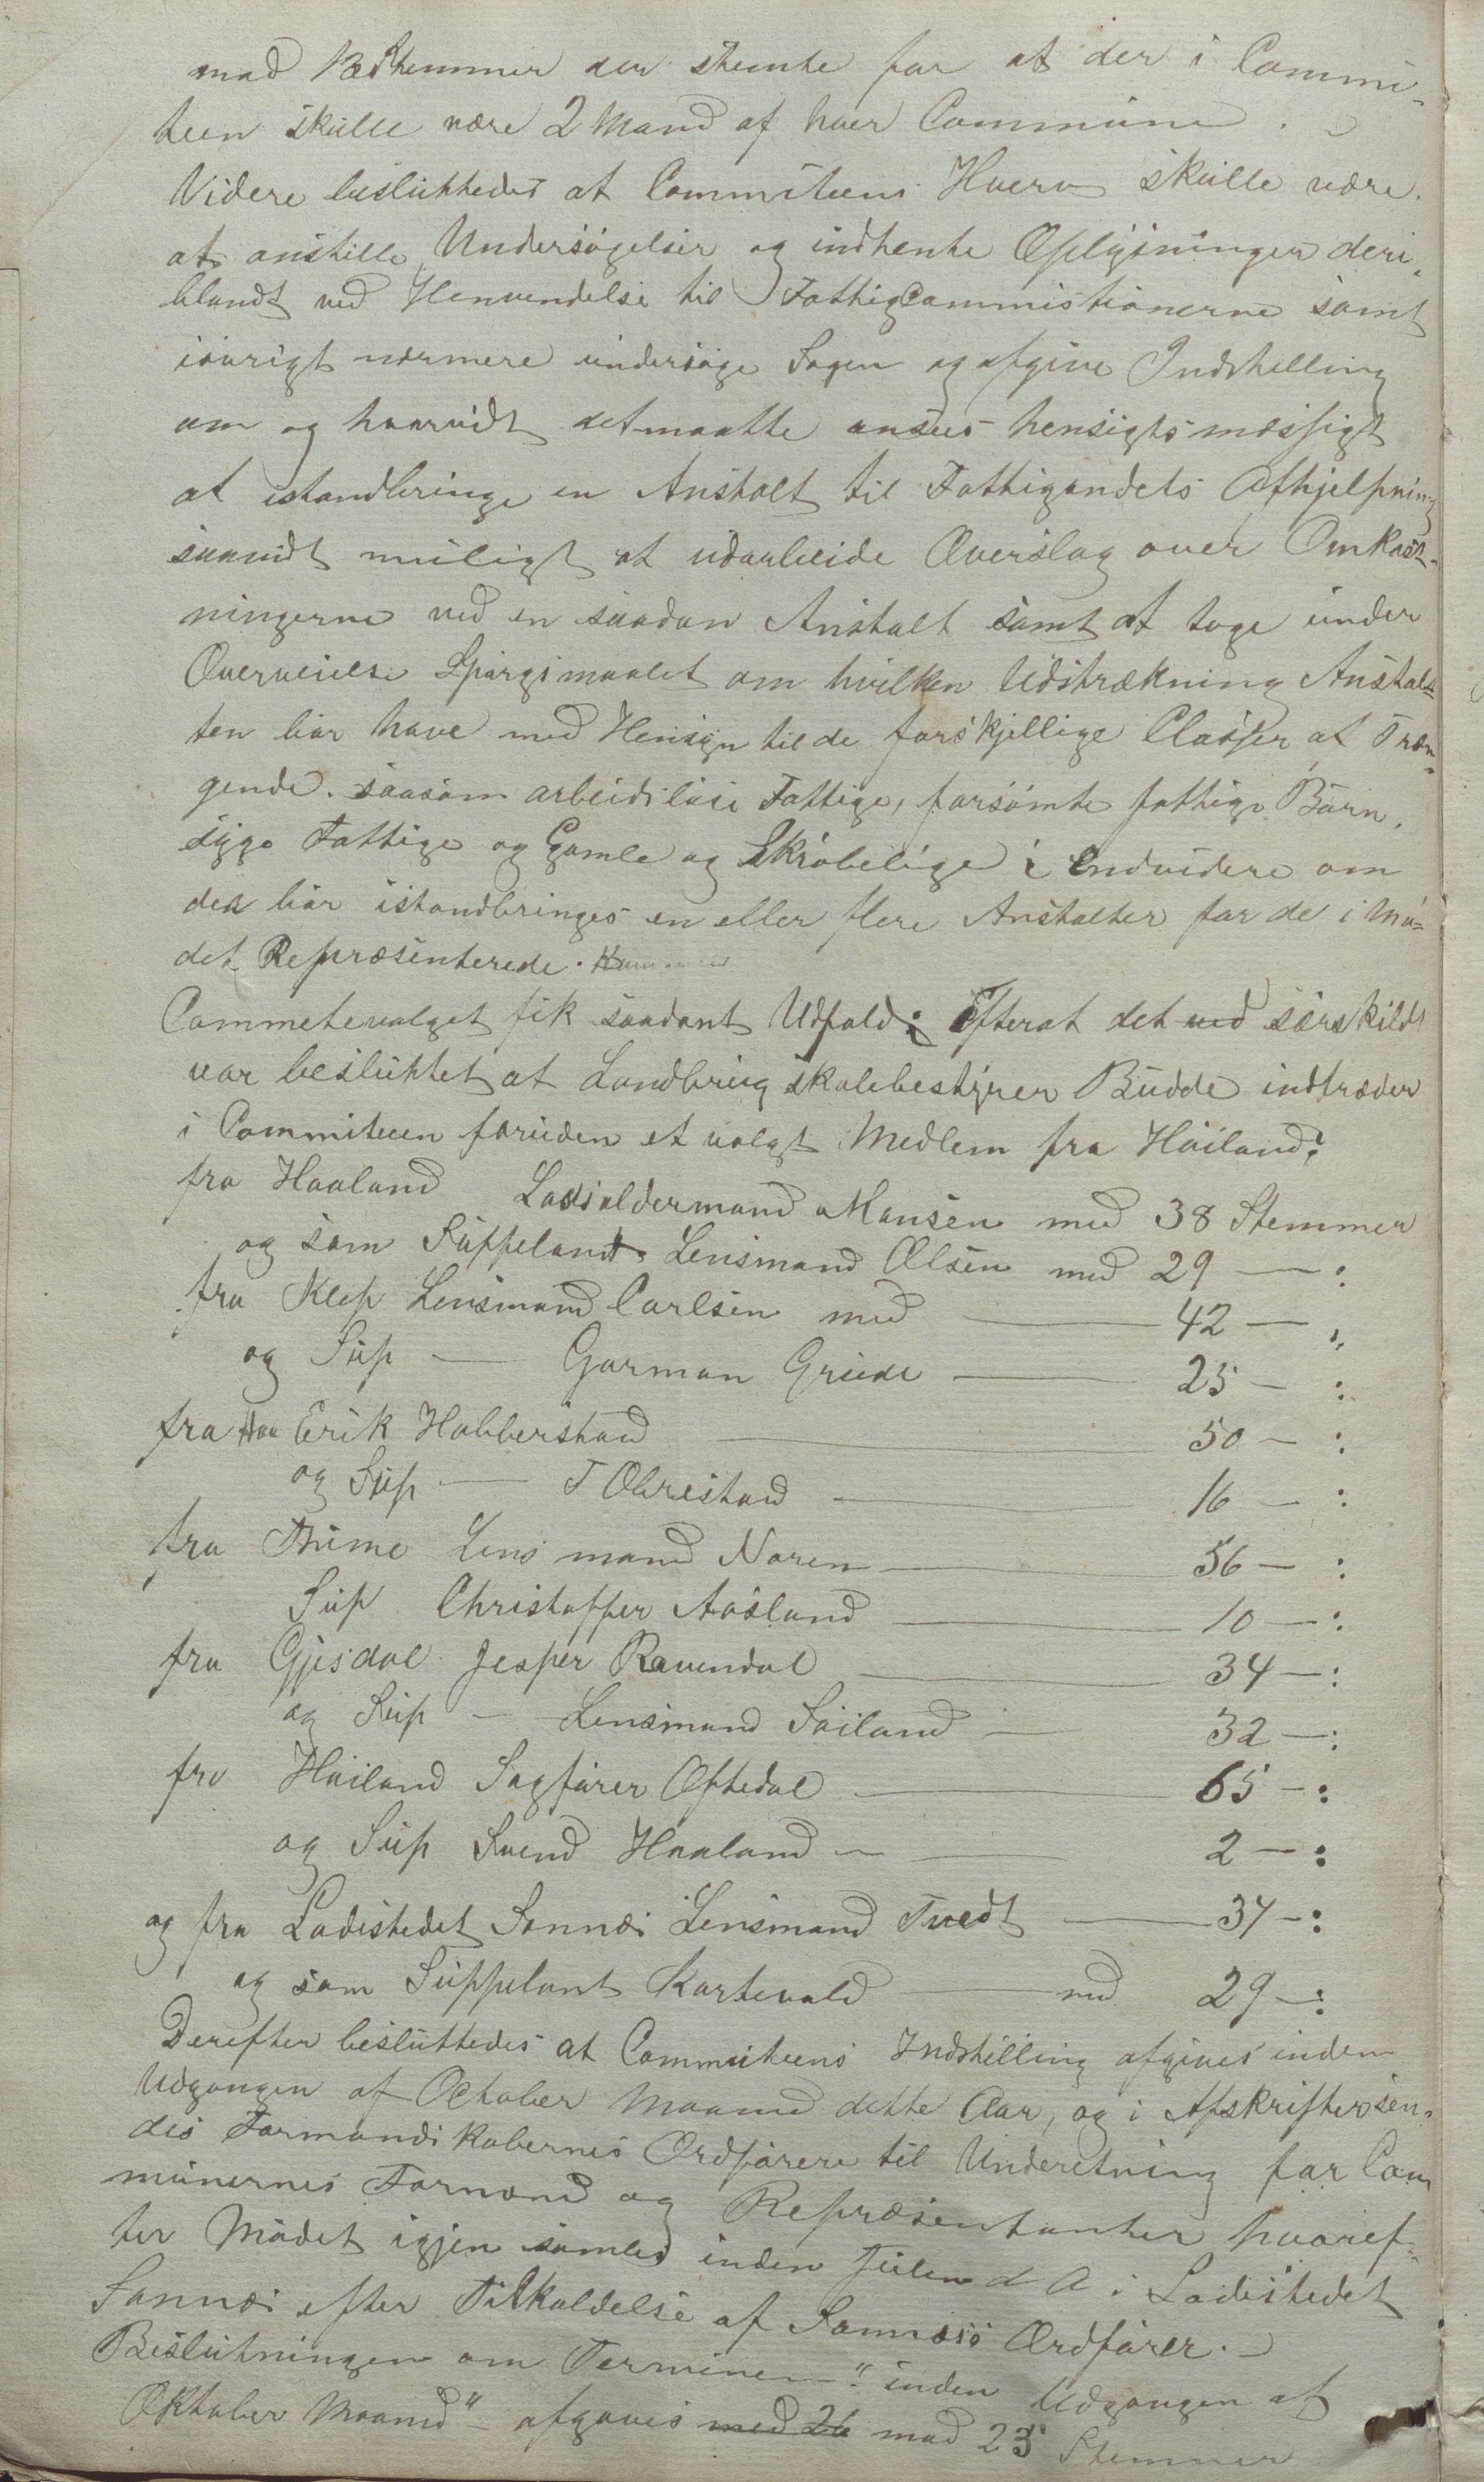 mod Stemmer der stemte for at der i Commi-
teen skulle være 2 Mand af hver Commune.
Videre besluttedes at Commiteens Hverv skulle være
at anstille Undersøgelser og indhente Oplysninger deri-
blandt ved Henvendelse til Fattigcommissionerne samt
iøvrigt nærmere undersøge Sagen og afgive Indstilling
om og hvorvidt det maatte ansees hensigtsmæssigt
at istandbringe en Anstalt til Fattigondets Afhjelpning
saavidt muligt at udarbeide Overslag over Omkost-
ningerne ved en saadan Anstalt samt at tage under
Overveielse Spørgsmaalet om hvilken Udstrækning Anstal-
ten bør have med Hensyn til de forskjellige Classer af Træn-
gende. saasom arbeidsløse Fattige, forsømte fattige Børn,
syge Fattige og Gamle og Skrøbelige; Endvidere om
der bør istandbringes en eller flere Anstalter for de i Mø-
det Repræsenterede.
Commetevalget fik saadant Udfald: Efterat det ved særskildt
var besluttet at Landbrugskolebestyrer Budde indtræder
i Commiteen foruden et valgt Medlem fra Høiland;
fra Haaland Lodsoldermand Monsen med 38 Stemmer
og som Suppelant Lensmand Olsen med 29 — :
fra Klep Lensmand Carlsen med — 42 — :
og Sup — Garman Grude — 25 — :
fra Haa Erik Hobberstad — 50 — :
og Sup — T Obrestad — 16 — :
fra Thime Lensmand Noren — 56 — :
Sup Christoffer Aasland — 10 — :
fra Gjesdal Jesper Ravndal — 34 — :
og Sup — Lensmand Søiland — 32 — :
fra Høiland Sagfører Oftedal — 65 — :
og Sup Svend Haaland — 2 — :
og fra Ladestedet Sannæs Lensmand Tvedt — 37 — :
og som Suppelant Kartevold — med 29 — :
Derefter besluttedes at Commiteens Indstilling afgives inden
Udgangen af October Maaned dette Aar, og i Afskrifter sen-
des Formandskabernes Ordførere til Underetning for Com
munernes Formænd og Repræsentanter hvoref-
ter Mødet igjen samles inden Julen d A i Ladestedet
Sannæs efter Tilkaldelse af Sannæs Ordfører.
Beslutningen om Terminen "inden Udgangen af
Oktober Maaned" – afgaves med 26 mod 23 Stemmer